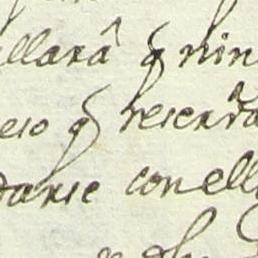 llará q nin
eso q reserba
darse conell